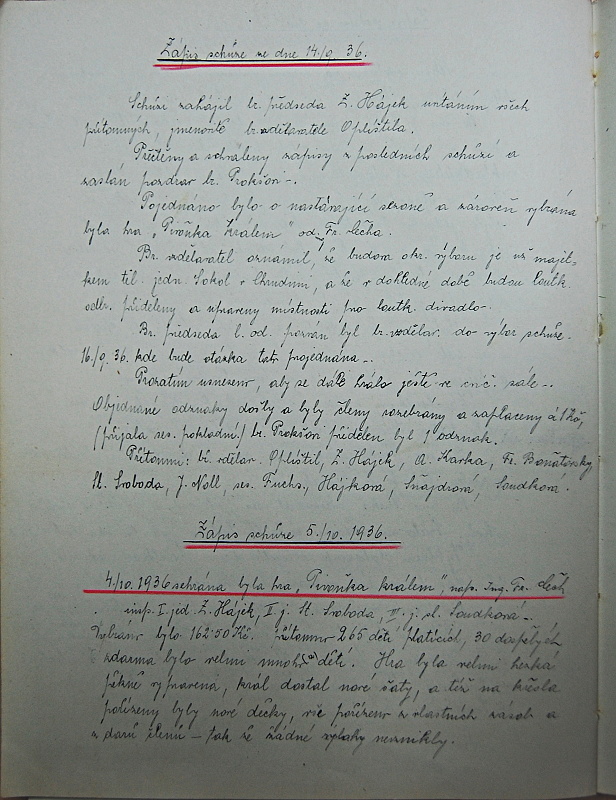 Zápis schůze ze dne 14./9. 36.
Schůzi zahájil br. předseda Z. Hájek uvítáním všech
přítomných, jmenovitě br. vzdělavatele Opłištila.
Přečteny a schváleny zápisy z posledních schůzí a
zaslán pozdrav br. Prokšovi.
Pojednáno bylo o nastávající sezoně a zároveň vybrána
byla hra "Pivoňka Králem" od Fr. Čecha.
Br. vzdělavatel oznámil, že budova okr. výboru je už majet-
kem těl. jedn. Sokol v Chrudimi, a že v dohledné době budou loutk.
odb. přiděleny a upraveny místnosti pro loutk. divadlo.
Br. předseda l. od. pozván byl br. vzdělav. do výbor. schůze
16./9. 36. kde bude otázka tato projednána.
Prozatím usneseno, aby se dále hrálo ještě ve cvič. sále.
Objednané odznaky došly a byly členy rozebrány a zaplaceny á 1 Kč,
(přijala ses. pokladní.) br. Prokšovi přidělen byl 1 odznak.
Přítomni: br. vzdělav. Opłištil, Z. Hájek, A. Karka, Fr.
St. Svoboda, J. Noll, ses. Fuchs., Hájková, Šnajdrová, Soudková.
Zápis schůze 5./10. 1936.
4./10. 1936 sehrána byla hra "Pivoňka králem", naps. Ing. Fr. Čech
insp. I. jed. Z. Hájek, II. j. St. Svoboda, III. j. sl. Soudková.
Vybráno bylo 162·50 Kč. Přítomno 265 dětí platících, 30 dospělých
zdarma bylo velmi mnoho dětí. Hra byla velmi hezká
pěkně vypravená, král dostal nové šaty, a též na křesla
pořízeny byly nové dečky, vše pořízeno z vlastních zásob a
z darů členů – tak že žádné výlohy nevznikly.